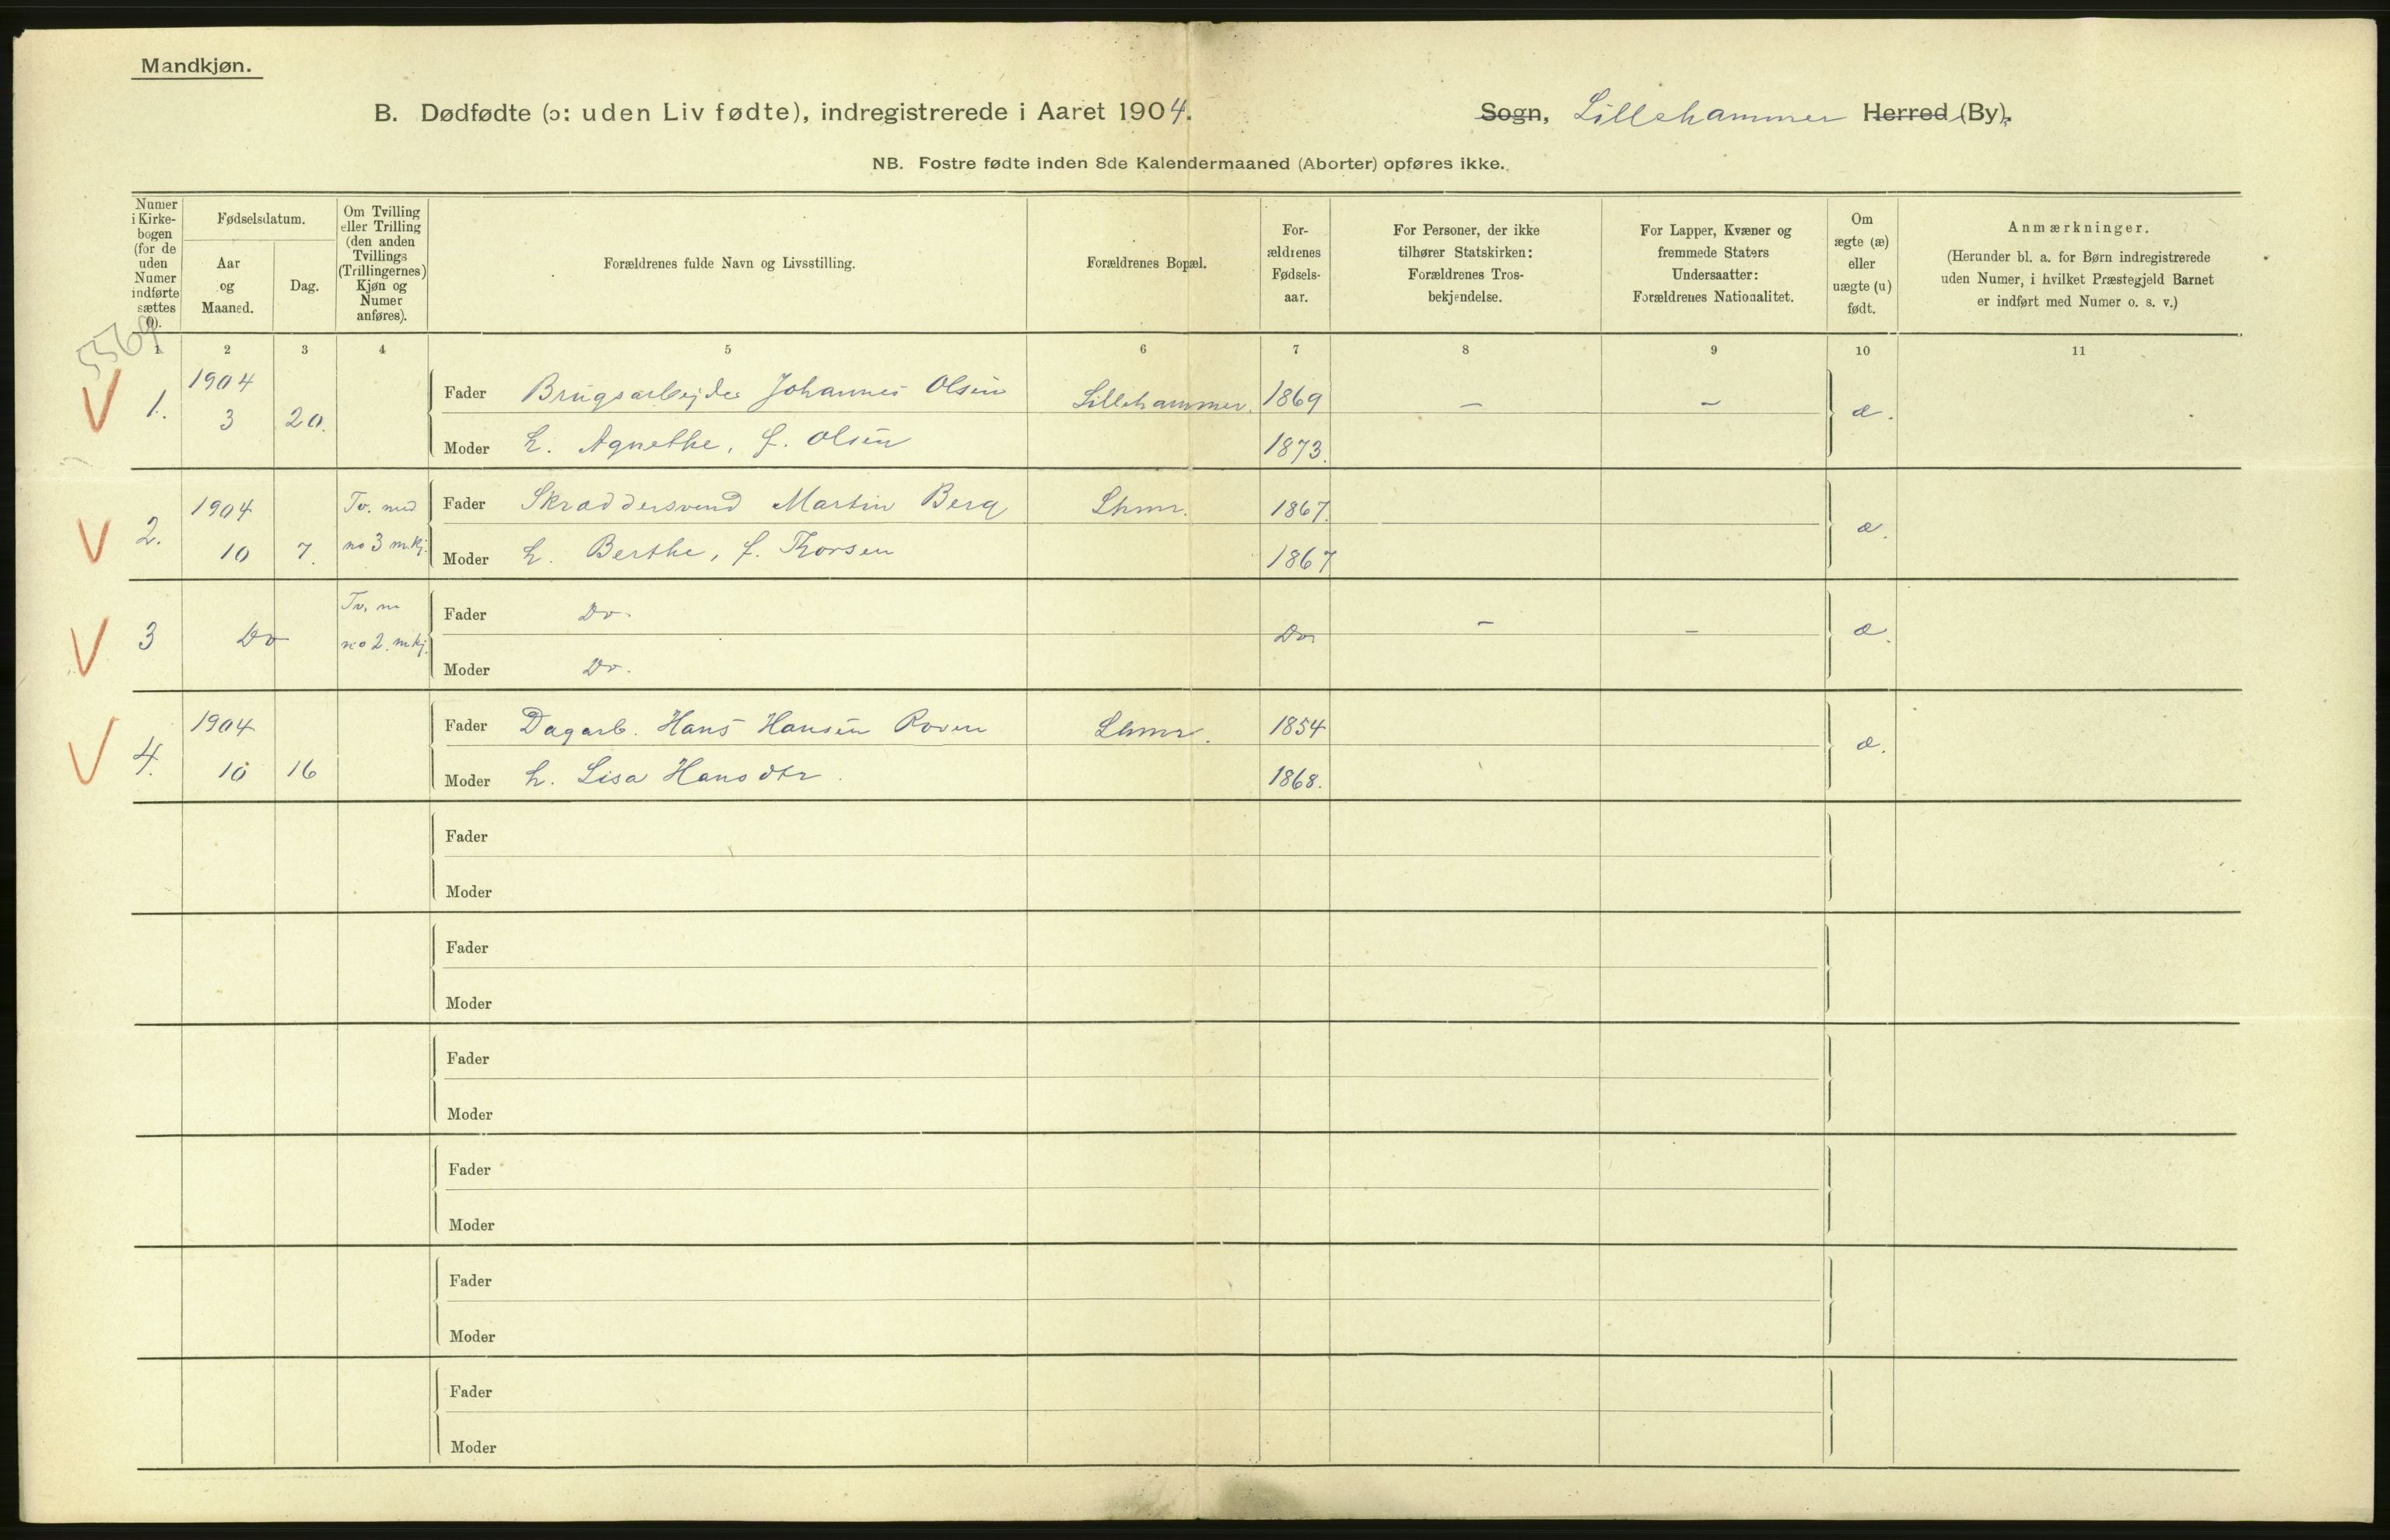 Mandkjøn.
B. Dødfødte (ɔ: uden Liv fødte), indregistrerede i Aaret 1904.
Sogn, Lillehammer Herred (By).
NB. Fostre fødte inden 8de Kalendermaaned (Aborter) opføres ikke.
Numer
i Kirke-
bogen
(for de
uden
Numer
indførte
sættes
0).
Fødselsdatum.
Aar
og
Maaned.
Dag.
Om Tvilling
eller Trilling
(den anden
Tvillings
(Trillingernes)
Kjøn og
Numer
anføres).
Forældrenes fulde Navn og Livsstilling.
Forældrenes Bopæl.
For-
ældrenes
Fødsels-
aar.
For Personer, der ikke
tilhører Statskirken:
Forældrenes Tros-
bekjendelse.
For Lapper, Kvæner og
fremmede Staters
Undersaatter:
Forældrenes Nationalitet.
Om
ægte (æ)
eller
uægte (u)
født.
Anmærkninger.
(Herunder bl. a. for Børn indregistrerede
uden Numer, i hvilket Præstegjeld Barnet
er indført med Numer o. s. v.)
5569
1 2 3 4 5 6 7 8 9 10 11
V 1. 1904 3 20. Fader Brugsarbejder Johannes Olsen Lillehammer. 1869 – – æ.
Moder h. Agnethe, f. Olsen 1873.
V 2. 1904 10 7. Tv. med no 3 m.kj. Fader Skræddersvend Martin Berg Lhmr. 1867. æ.
Moder h. Berthe, f. Thorsen 1867
V 3 Do Tv. m no 2. m.kj. Fader Do. Do. – – æ.
Moder Do.
V 4. 1904 10 16 Fader Dagarb. Hans Hansen Roven Lhmr. 1854 æ.
Moder h. Lisa Hansdtr. 1868.
Fader
Moder
Fader
Moder
Fader
Moder
Fader
Moder
Fader
Moder
Fader
Moder